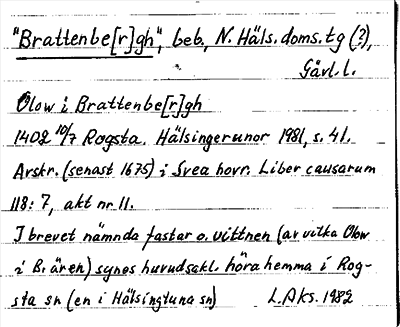 "Brattenbe[r]gh", beb., N. Häls. doms.tg (?),
Gävl. l.
Olow i Brattenbe[r]gh
1402 10/7 Rogsta. Hälsingerunor 1981, s. 41.
Avskr. (senast 1675) i Svea hovr. Liber causarum
118:7, akt nr 11.
I brevet nämnda fastar o. vittnen (av vilka Olow
i B. är en) synes huvudsakl. höra hemma i Rog-
sta sn (en i Hälsingtuna sn) L.Aks. 1982